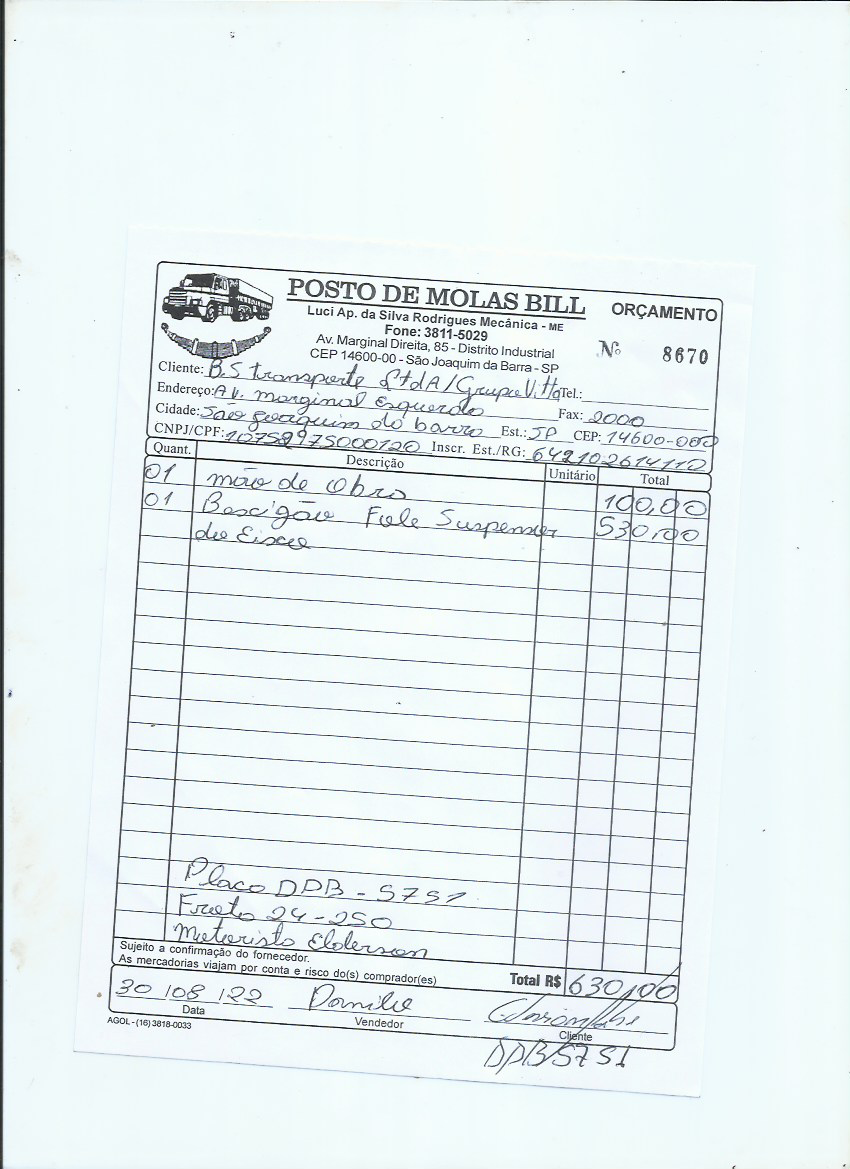 POSTO DE MOLAS BILL
ORÇAMENTO
Luci Ap. da Silva Rodrigues Mecânica - ME
Fone: 3811-5029
Av. Marginal Direita, 85 - Distrito Industrial
CEP 14600-00 - São Joaquim da Barra - SP
Nº 8670
Cliente: B.S transporte LtdA/Grupo Vitta Tel.:
Endereço: Av. marginal Esquerda Fax: 2000
Cidade: São Joaquim da barra Est.: SP CEP: 14600-000
CNPJ/CPF: 10758975000120 Inscr. Est./RG: 642102614110
Quant. Descrição Unitário Total
01 mão de Obra 100,00
01 Bocigão Fole Suspensor 530,00
do Eixo
Placa DPB - 5751
Frota 24-250
Motorista Elderson
Sujeito a confirmação do fornecedor.
As mercadorias viajam por conta e risco do(s) comprador(es)
Total R$ 630,00
30/08/22 Danilo
Data Vendedor Cliente
AGOL - (16) 3818-0033
DPB 5751